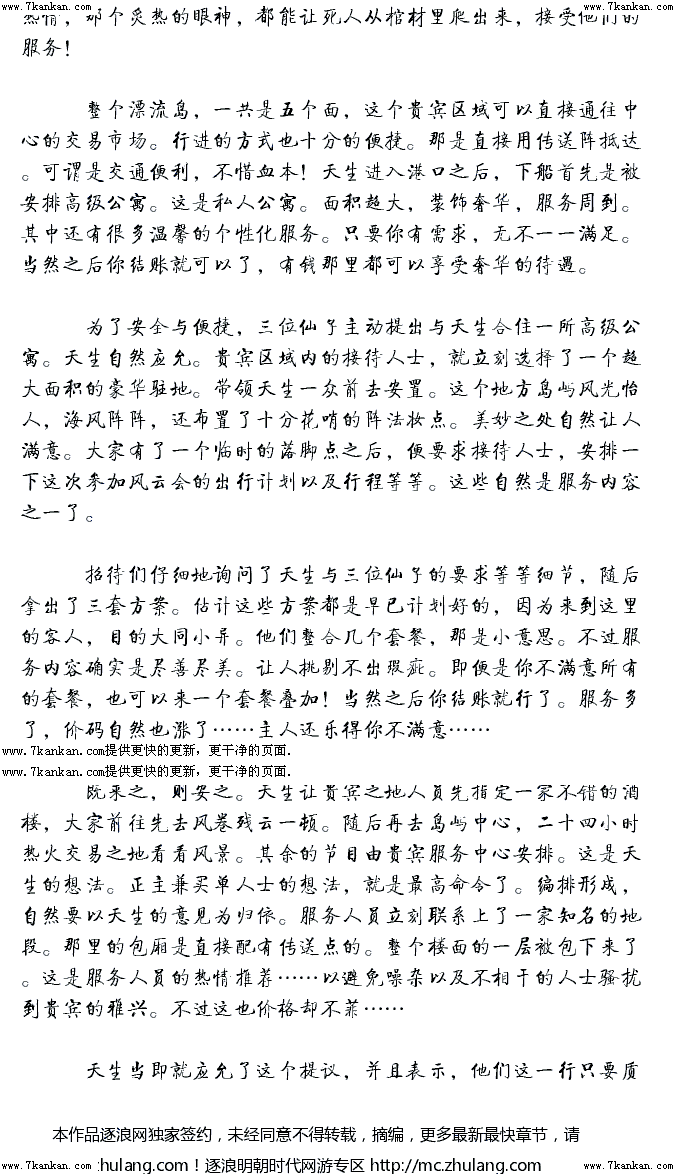 www.7kankan.com
www.7kankan.com
热情，那个炙热的眼神，都能让死人从棺材里爬出来，接受他们的
服务！
整个漂流岛，一共是五个面，这个贵宾区域可以直接通往中
心的交易市场。行进的方式也十分的便捷。那是直接用传送阵抵达
。可谓是交通便利，不惜血本！天生进入港口之后，下船首先是被
安排高级公寓。这是私人公寓。面积超大，装饰奢华，服务周到。
其中还有很多温馨的个性化服务。只要你有需求，无不一一满足。
当然之后你结账就可以了，有钱那里都可以享受奢华的待遇。
为了安全与便捷，三位仙子主动提出与天生合住一所高级公
寓。天生自然应允。贵宾区域内的接待人士，就立刻选择了一个超
大面积的豪华驻地。带领天生一众前去安置。这个地方岛屿风光怡
人，海风阵阵，还布置了十分花哨的阵法妆点。美妙之处自然让人
满意。大家有了一个临时的落脚点之后，便要求接待人士，安排一
下这次参加风云会的出行计划以及行程等等。这些自然是服务内容
之一了。
招待们仔细地询问了天生与三位仙子的要求等等细节，随后
拿出了三套方案。估计这些方案都是早已计划好的，因为来到这里
的客人，目的大同小异。他们整合几个套餐，那是小意思。不过服
务内容确实是尽善尽美。让人挑剔不出瑕疵。即便是你不满意所有
的套餐，也可以来一个套餐叠加！当然之后你结账就行了。服务多
了，价码自然也涨了……主人还乐得你不满意……
www.7kankan.com提供更快的更新，更干净的页面.
www.7kankan.com提供更快的更新，更干净的页面.
既来之，则安之。天生让贵宾之地人员先指定一家不错的酒
楼，大家前往先去风卷残云一顿。随后再去岛屿中心，二十四小时
热火交易之地看看风景。其余的节目由贵宾服务中心安排。这是天
生的想法。正主兼买单人士的想法，就是最高命令了。编排形成，
自然要以天生的意见为归依。服务人员立刻联系上了一家知名的地
段。那里的包厢是直接配有传送点的。整个楼面的一层被包下来了
。这是服务人员的热情推荐……以避免噪杂以及不相干的人士骚扰
到贵宾的雅兴。不过这也价格却不菲……
天生当即就应允了这个提议，并且表示，他们这一行只要质
本作品逐浪网独家签约，未经同意不得转载，摘编，更多最新最快章节，请
www.7kankan.com
zhulang.com！逐浪明朝时代网游专区 http://mc.zhulang.com
www.7kankan.com